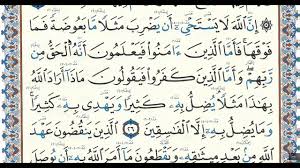 ۞ إِنَّ ٱللَّهَ لَا يَسْتَحْىِۦٓ أَن يَضْرِبَ مَثَلًا مَّا بَعُوضَةً فَمَا
فَوْقَهَا فَأَمَّا ٱلَّذِينَ ءَامَنُوا۟ فَيَعْلَمُونَ أَنَّهُ ٱلْحَقُّ مِن
رَّبِّهِمْ وَأَمَّا ٱلَّذِينَ كَفَرُوا۟ فَيَقُولُونَ مَاذَآ أَرَادَ ٱللَّهُ
بِهَٰذَا مَثَلًا يُضِلُّ بِهِۦ كَثِيرًا وَيَهْدِى بِهِۦ كَثِيرًا
وَمَا يُضِلُّ بِهِۦٓ إِلَّا ٱلْفَٰسِقِينَ ٢٦ ٱلَّذِينَ يَنقُضُونَ عَهْدَ
ٱللَّهِ مِنۢ بَعْدِ مِيثَٰقِهِۦ وَيَقْطَعُونَ مَآ أَمَرَ ٱللَّهُ بِهِۦٓ أَن يُوصَلَ